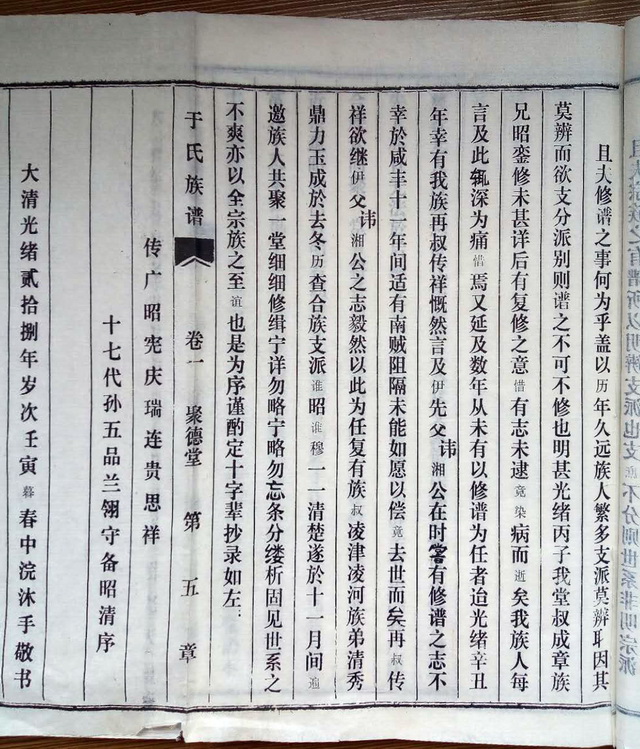 且夫修谱之事何为乎盖以历年久远族人繁多支派莫辨耳因其
莫辨而欲支分派别则谱之不可不修也明甚光绪丙子我堂叔成章族
兄昭銮修未甚详后有复修之意惜有志未逮竟染病而逝矣我族人每
言及此辄深为痛惜焉又延及数年从未有以修谱为任者迨光绪辛丑
年幸有我族再叔传祥慨然言及伊先父讳湘公在时尝有修谱之志不
幸於咸丰十一年间适有南贼阻隔未能如愿以偿竟去世而矣再叔传
祥欲继伊父讳湘公之志毅然以此为任复有族叔凌津凌河族弟清秀
鼎力玉成於去冬历查合族支派谁昭谁穆一一清楚遂於十一月间遍
邀族人共聚一堂细细修缉宁详勿略宁略勿忘条分缕析固见世系之
不爽亦以全宗族之至谊也是为序谨酌定十字辈抄录如左
于氏族谱 卷一 聚德堂 第五章
传广昭宪庆瑞连贵思祥
十七代孙五品兰翎守备昭清序
大清光绪贰拾捌年岁次壬寅暮春中浣沐手敬书